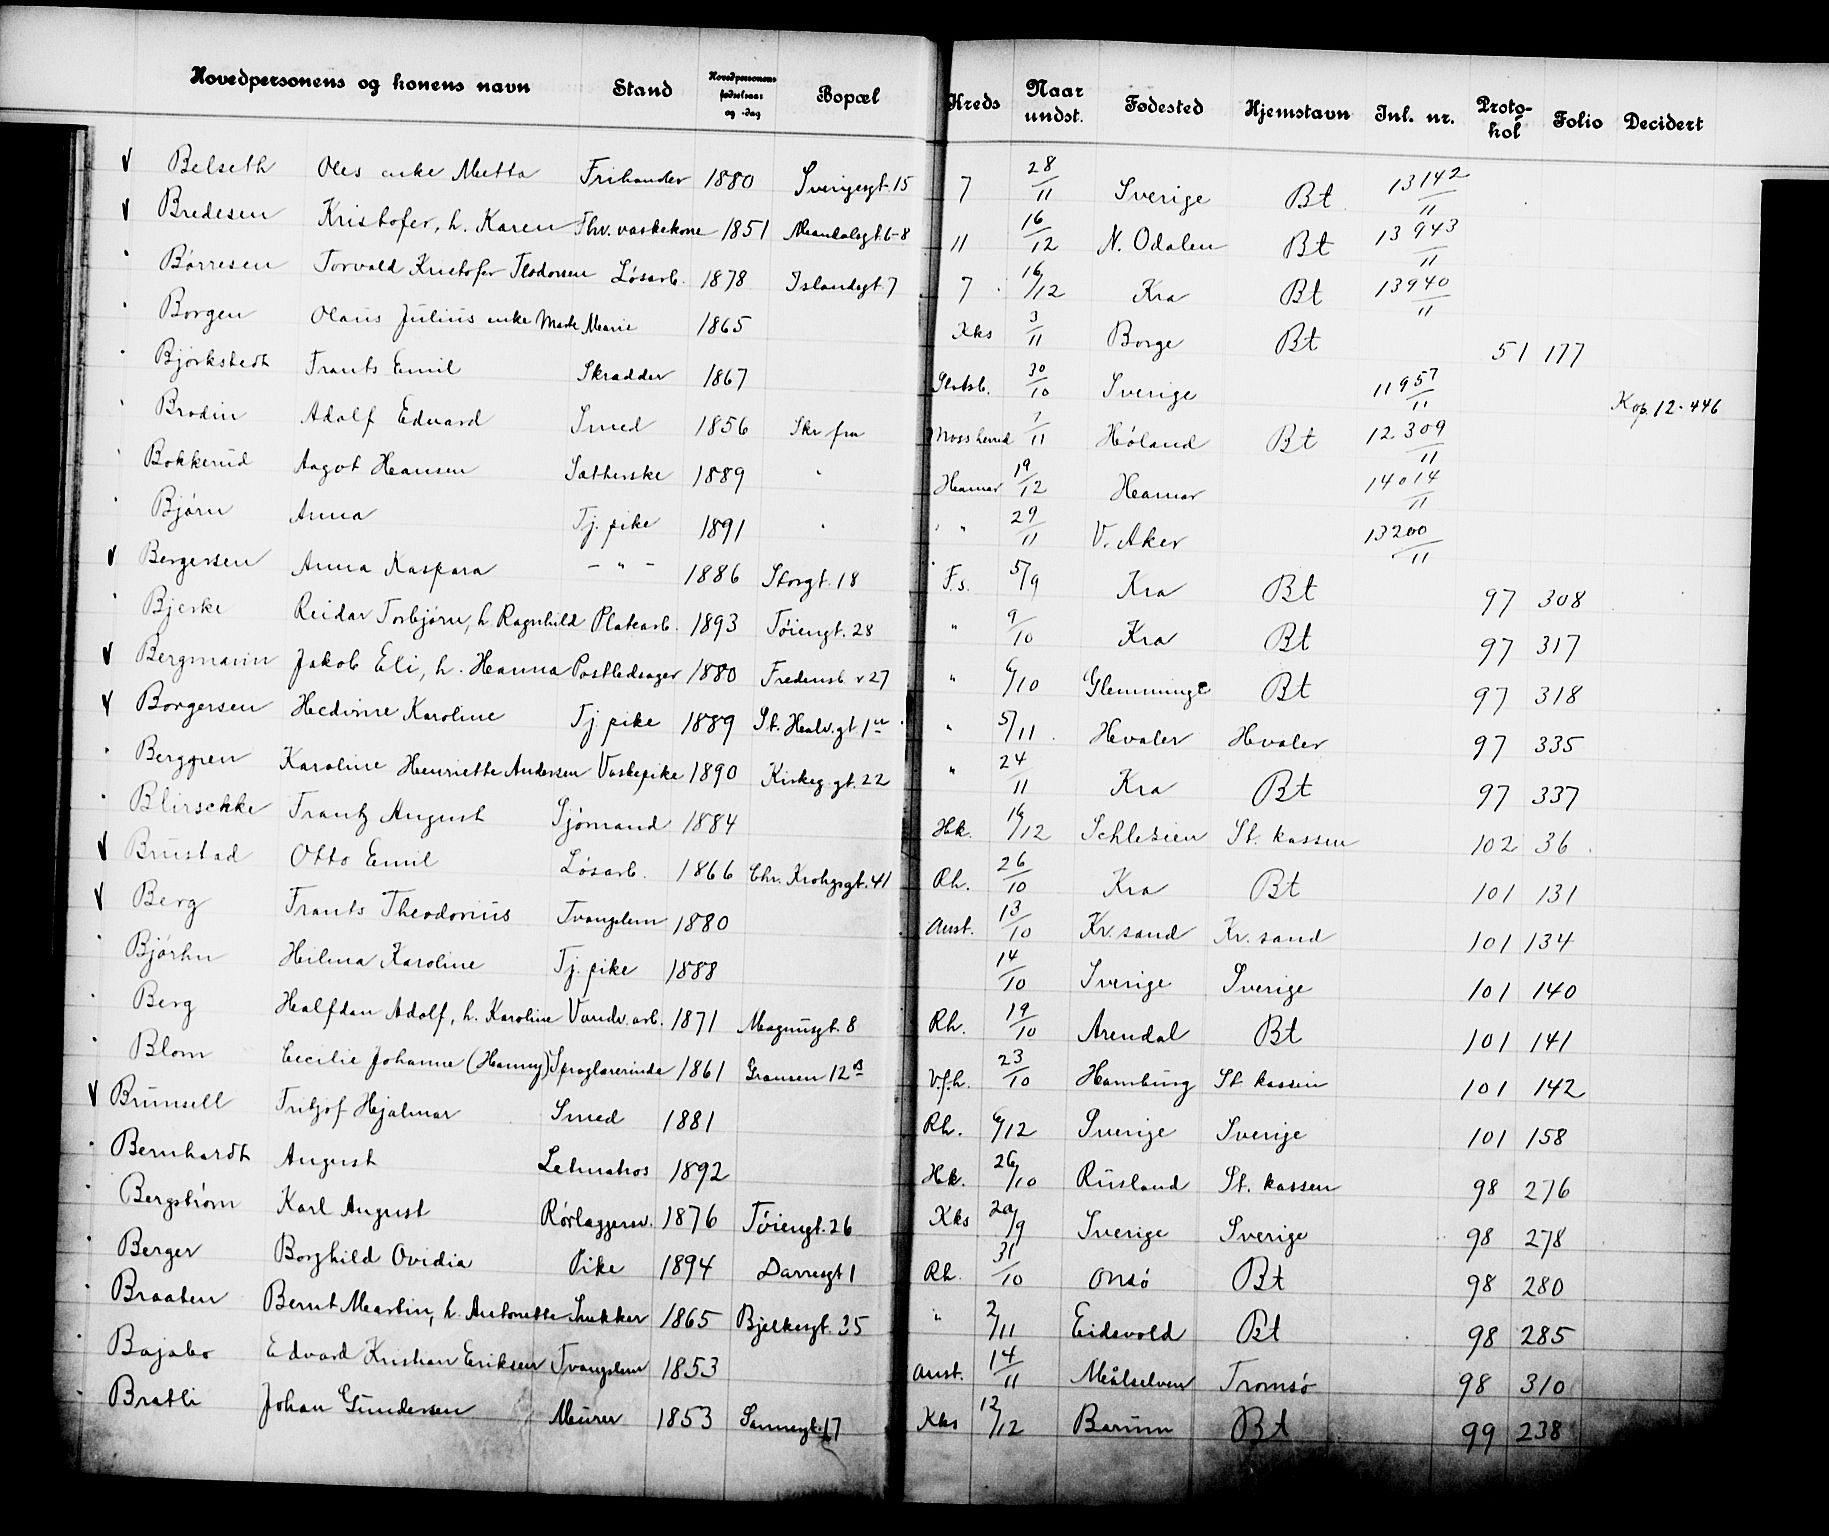 Hovedpersonens og konens navn Stand Hovedpersonens fødselsaar og -dag Bopæl Kreds Naar undst. Fødested Hjemstavn Inl. nr. Protokol Folio Decidert
V Belseth Oles enke Mette Frihandler 1880 Sverigesgt. 15 7 28/11 Sverige Bt 13142/11
V Bredesen Kristofer, h. Karen Thv. vaskekone 1851 Mandalsgt. 6-8 11 16/12 N. Odalen Bt 13943/11
Børresen Torvald Kristofer Teodorsen Løsarb. 1878 Islandsgt. 7 7 16/12 Kra Bt 13940/11
Borgen Olaus Julius enke Marie 1865 Kks 3/11 Borge Bt 51 177
Bjørkstedt Frants Emil Skrædder 1867 30/10 Sverige 11957/11 Kop. 12-446
Brodin Adolf Edvard Smed 1856 Skr. fra Moss herred 7/11 Høland Bt 12309/11
Bokkerud Aagot Hansen 1889 " Hamar 19/12 Hamar 14014/11
Bjørn Anna Tj. pike 1891 " " 29/11 V. Aker 13200/11
V Bergersen Anna Kaspara - " - 1886 Storgt. 18 F.s. 5/9 Kra Bt 97 308
Bjerke Reidar Torbjørn, h. Ragnhild Platearb. 1893 Tøiengt. 28 " 9/10 Kra Bt 97 317
V Bergmann Jakob Eli, h. Hanna Postledsager 1880 Fredensb. v 27 " 6/10 Glemminge Bt 97 318
V Borgersen Hedvine Karoline Tj. pike 1889 St. Halv. gt 1 " 5/11 Hvaler Hvaler 97 335
Berggren Karoline Henriette Andersen Vaskepike 1890 Kirkeg. gt. 22 " 24/11 Kra Bt 97 337
Blirschke Frantz August Sjømand 1884 Hk. 16/12 Schlesien St. kassen 102 36
V Brustad Otto Emil Løsarb. 1866 Chr. Krohgsgt. 41 Rh. 26/10 Kra Bt 101 131
V Berg Frants Theodorius Tvangslem 1880 Anst. 13/10 Kr. sand Kr. sand 101 134
Bjørhn Hilma Karoline Tj. pike 1888 14/10 Sverige Sverige 101 140
Berg Halfdan Adolf, h. Karoline Vandv. arb. 1871 Magnusgt. 8 Rh. 19/10 Arendal Bt 101 141
Blom Cecilie Johanne (Hanny) Sproglærerinde 1861 Grønsen 12 V.f.h. 23/10 Hamburg St. kassen 101 142
V Brunsell Fritjof Hjalmar Smed 1881 Rh. 6/12 Sverige Sverige 101 158
Bernhardt August Letmatros 1892 Hk. 26/10 Rusland St. kassen 98 276
Bergstrøm Karl August Rørlæggersv. 1876 Tøiengt. 26 Kks 20/9 Sverige Sverige 98 278
Berger Borghild Ovidia Pike 1894 Darresgt 1 Rh. 31/10 Onsø Bt 98 280
Braaten Bernt Martin, h. Antonette Snekker 1865 Bjelkesgt. 35 " 2/11 Eidsvold Bt 98 285
Bajabo Edvard Kristian Eriksen Tvangslem 1853 Anst. 14/11 Målselven Tromsø 98 310
Bratli Johan Gundersen Murer 1853 Sannergt. 17 Kks 12/12 Bærum Bt 99 238